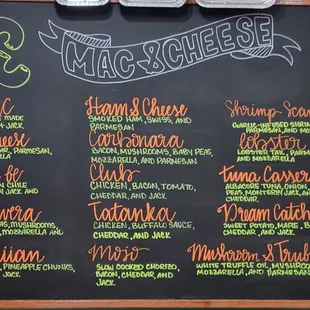 MAC & CHEESE
C
MADE
JACK.
Cheese
PARMESAN,
be
CHILE
JACK AND
MUSHROOMS,
MOZZARELLA AND
iian
PINEAPPLE CHUNKS,
JACK.
Ham & Cheese
SMOKED HAM, SWISS, AND
PARMESAN
Carbonara
BACON, MUSHROOMS, BABY PEAS,
MOZZARELLA, AND PARMESAN
Club
CHICKEN, BACON, TOMATO,
CHEDDAR, AND JACK.
Tatanka
CHICKEN, BUFFALO SAUCE,
CHEDDAR, AND JACK
Mojo
SLOW COOKED CHORIZO,
BACON, CHEDDAR, AND
JACK
Shrimp Sca
GARLIC-INFUSED SHRIM
PARMESAN, AND MO
Lobster
LOBSTER TAIL, PARM
AND MOZZARELLA
Tuna Casser
ALBACORE TUNA, ONION,
PEAS, MONTEREY JACK, AND
CHEDDAR.
Dream Catch
SWEET POTATO, MAPLE, B
CHEDDAR, AND JACK.
Mushroom & Trub
WHITE TRUFFLE OIL, MUSHROOM
MOZZARELLA, AND PARMESAN